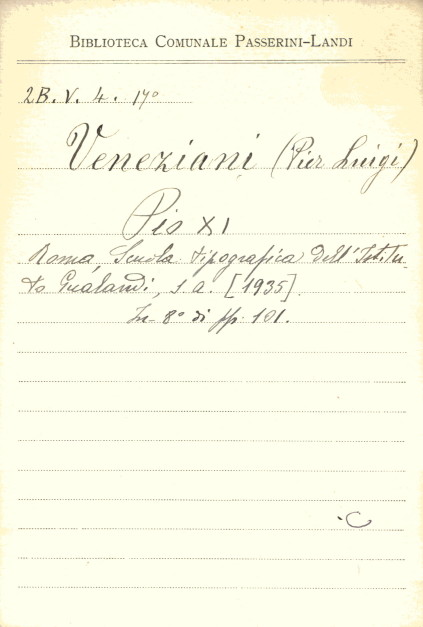 BIBLIOTECA COMUNALE PASSERINI-LANDI
2B. V. 4. 17°
Veneziani (Pier Luigi)
Pio XI
Roma, Scuola tipografica dell'Istitu-
to Gualandi, s. a. [1935].
In 8° di pp. 101.
C